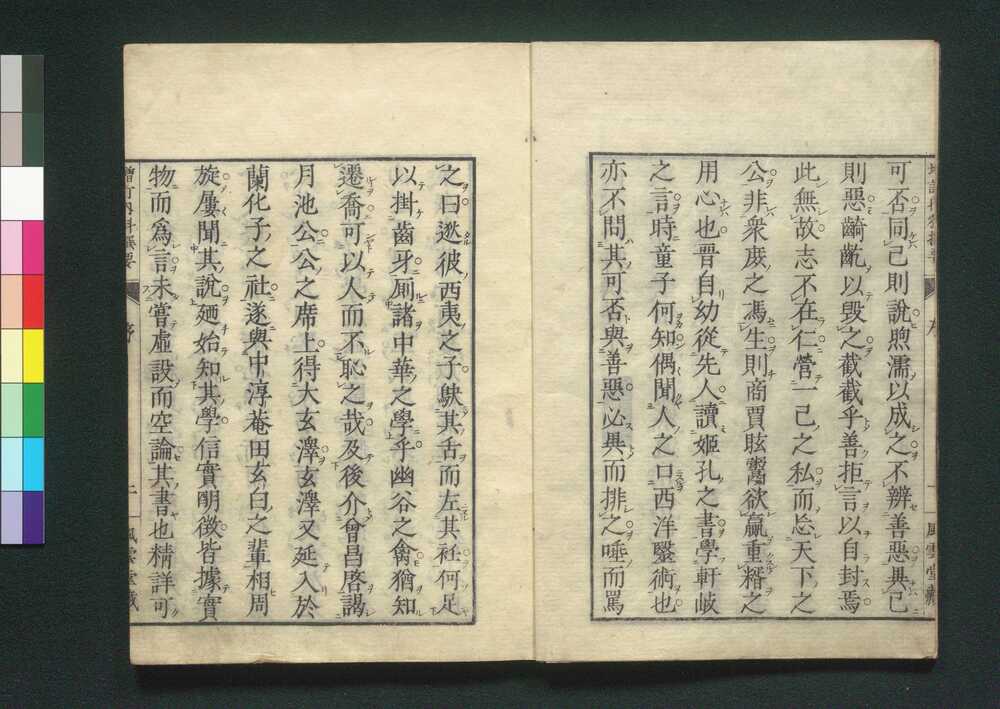 可否同己則説喣濡以成之不辨善惡異己
則惡齮齕以毀之截截乎善拒言以自封焉
此無故志不在仁營一己之私而忘天下之
公非衆庻之馮生則商賈眩鬻欲贏重糈之
用心也晋自幼從先人讀姬孔之書學軒岐
之言時童子何知偶聞人之口西洋毉術也
亦不問其可否與善惡必異而排之唾而罵
之曰逖彼西夷之子鴃其舌而左其衽何足
以掛齒牙厠諸中華之學乎幽谷之禽猶知
遷喬可以人而不恥之哉及後介曾昌啓謁
月池公公之席上得大玄澤玄澤又延入於
蘭化子之社遂與中淳菴田玄白之輩相周
旋屢聞其説廼始知其學信實明徴皆據實
物而爲言未嘗虛設而空論其書也精詳可
序
風雲堂藏